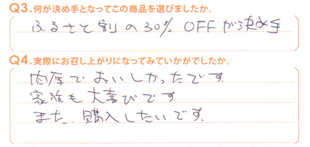 Q3.何が決め手となってこの商品を選びましたか。
ふるさと割の30% OFFが決め手
Q4.実際にお召し上がりになってみていかがでしたか。
肉厚でおいしかったです
家族も大喜びです
また、購入したいです。